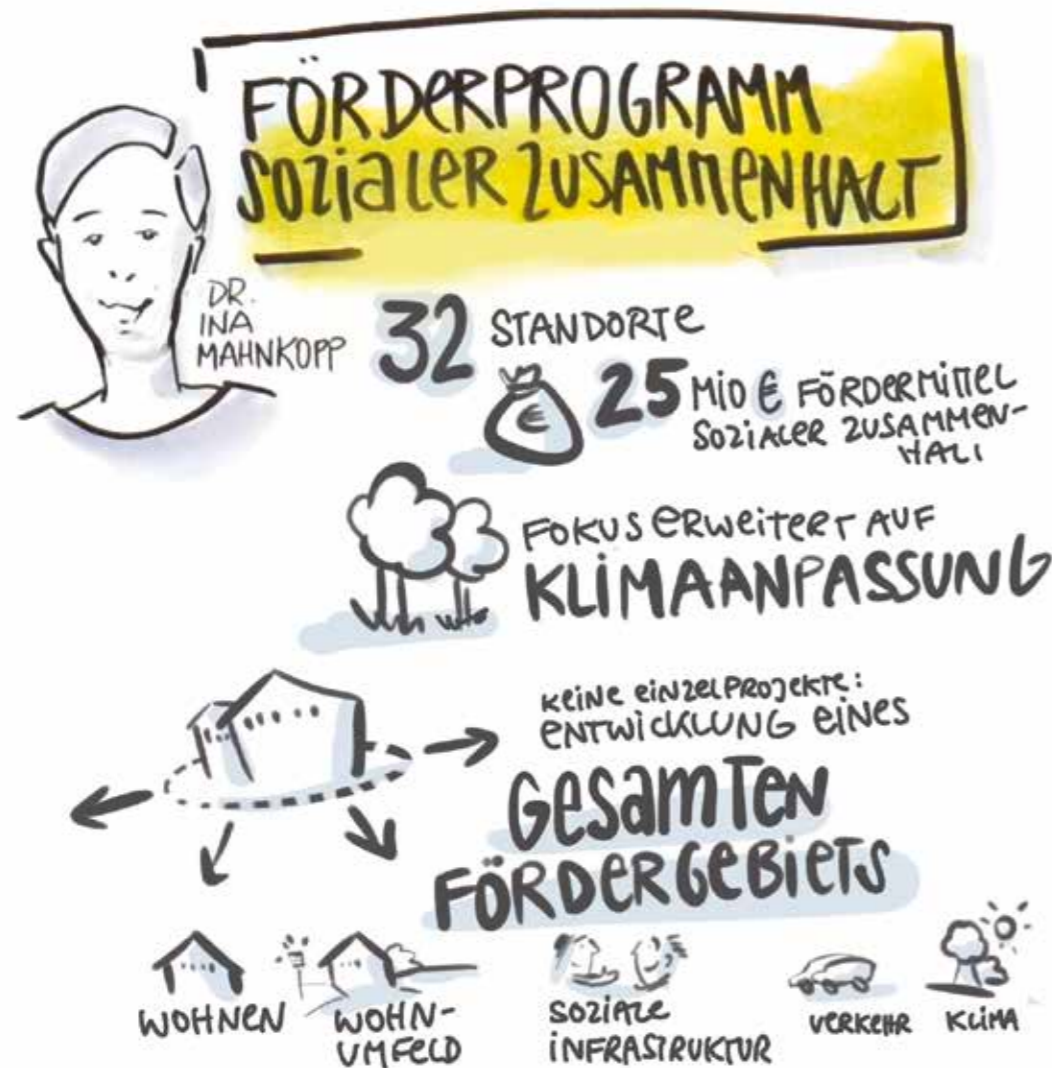 FÖRDERPROGRAMM
SOZIALER ZUSAMMENHALT
DR.
INA
MAHNKOPP
32 STANDORTE
€
25 MIO € FÖRDERMITTEL
SOZIALER ZUSAMMEN-
HALT
FOKUS ERWEITERT AUF
KLIMAANPASSUNG
KEINE EINZELPROJEKTE:
ENTWICKLUNG EINES
GESAMTEN
FÖRDERGEBIETS
WOHNEN
WOHN-
UMFELD
SOZIALE
INFRASTRUKTUR
VERKEHR
KLIMA